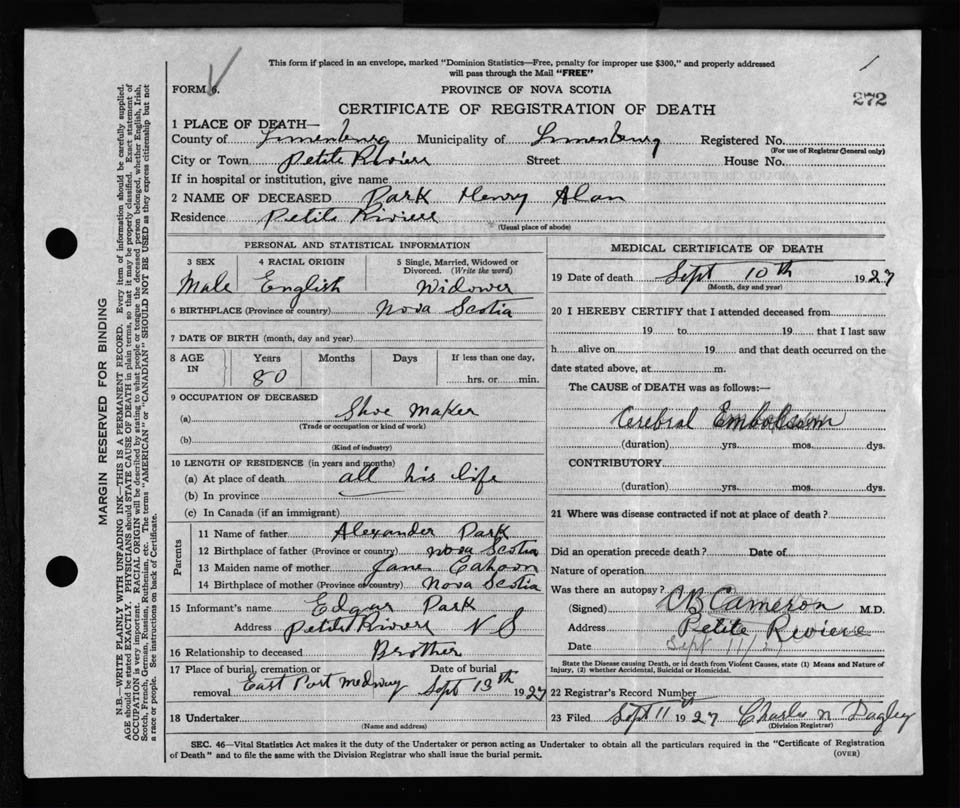 This form if placed in an envelope, marked "Dominion Statistics—Free, penalty for improper use $300," and properly addressed
will pass through the Mail "FREE"
FORM 6.
PROVINCE OF NOVA SCOTIA
272
CERTIFICATE OF REGISTRATION OF DEATH
1 PLACE OF DEATH—
County of Lunenburg Municipality of Lunenburg Registered No.
(For use of Registrar General only)
City or Town Petite Riviere Street House No.
If in hospital or institution, give name
2 NAME OF DECEASED Park Henry Alan
Residence Petite Riviere
(Usual place of abode)
PERSONAL AND STATISTICAL INFORMATION
3 SEX 4 RACIAL ORIGIN 5 Single, Married, Widowed or
Divorced. (Write the word)
Male English Widower
6 BIRTHPLACE (Province or country) Nova Scotia
7 DATE OF BIRTH (month, day and year)
8 AGE IN Years Months Days If less than one day,
80 hrs. or min.
9 OCCUPATION OF DECEASED
(a) Shoe Maker
(Trade or occupation or kind of work)
(b)
(Kind of industry)
10 LENGTH OF RESIDENCE (in years and months)
(a) At place of death all his life
(b) In province
(c) In Canada (if an immigrant)
Parents
11 Name of father Alexander Park
12 Birthplace of father (Province or country) Nova Scotia
13 Maiden name of mother Jane Cahoon
14 Birthplace of mother (Province or country) Nova Scotia
15 Informant's name Edgar Park
Address Petite Riviere N S
16 Relationship to deceased Brother
17 Place of burial, cremation or Date of burial
removal East Port Medway Sept 13th 1927
18 Undertaker
(Name and address)
MEDICAL CERTIFICATE OF DEATH
19 Date of death Sept 10th 1927
(Month, day and year)
20 I HEREBY CERTIFY that I attended deceased from
19 to 19 that I last saw
h alive on 19 and that death occurred on the
date stated above, at m.
The CAUSE of DEATH was as follows:—
Cerebral Embolism
(duration) yrs. mos. dys.
CONTRIBUTORY
(duration) yrs. mos. dys.
21 Where was disease contracted if not at place of death?
Did an operation precede death? Date of
Nature of operation
Was there an autopsy?
(Signed) Cameron M.D.
Address Petite Riviere
Date Sept 11/27
State the Disease causing Death, or in death from Violent Causes, state (1) Means and Nature of
Injury, (2) whether Accidental, Suicidal or Homicidal.
22 Registrar's Record Number
23 Filed Sept 11 1927 Charles N Pagley
(Division Registrar)
SEC. 46—Vital Statistics Act makes it the duty of the Undertaker or person acting as Undertaker to obtain all the particulars required in the "Certificate of Registration
of Death" and to file the same with the Division Registrar who shall issue the burial permit.
(OVER)
MARGIN RESERVED FOR BINDING
N.B.—WRITE PLAINLY WITH UNFADING INK—THIS IS A PERMANENT RECORD. Every item of information should be carefully supplied.
AGE should be stated EXACTLY. PHYSICIANS should STATE CAUSE OF DEATH in plain terms, so that it may be properly classified. Exact statement of
OCCUPATION is very important. RACIAL ORIGIN will be described by stating to what people or tongue the deceased person belonged, whether English, Irish,
Scotch, French, German, Russian, Ruthenian, etc. The terms "AMERICAN" or "CANADIAN" SHOULD NOT BE USED as they express citizenship but not
a race or people. See instructions on back of Certificate.